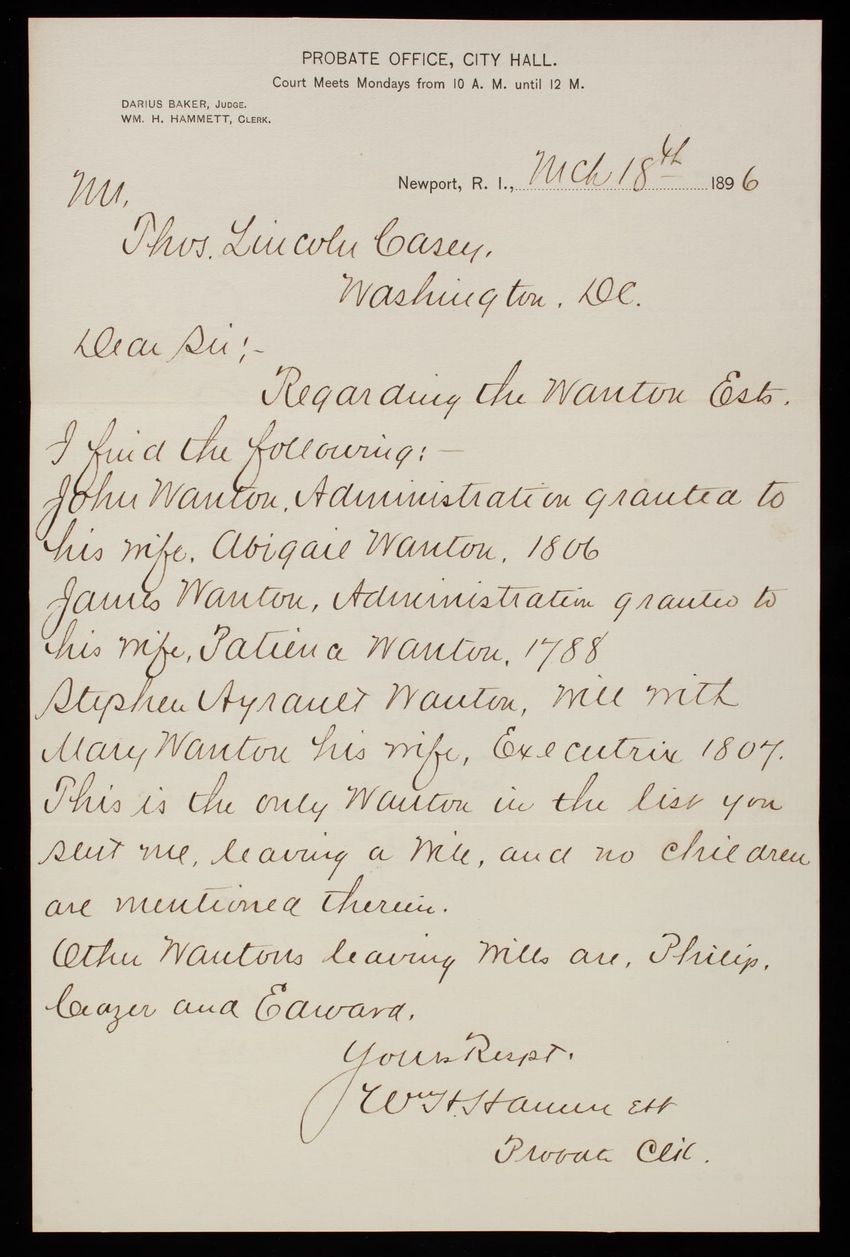 PROBATE OFFICE, CITY HALL.
Court Meets Mondays from 10 A. M. until 12 M.
DARIUS BAKER, JUDGE.
WM. H. HAMMETT, CLERK.
Newport, R. I., Mch 18th 1896
Mr,
Thos. Lincoln Casey.
Washington, DC.
Dear Sir;-
Regarding the Wanton Ests.
I find the following:-
John Wanton, Administration granted to
his wife, Abigail Wanton, 1806
James Wanton, Administration granted to
his wife, Patiena Wanton, 1788
Stephen Ayrault Wanton, Will with
Mary Wanton his wife, Executrix 1807.
This is the only Wanton in the list you
sent me, leaving a Will, and no children
are mentioned therein.
Other Wantons leaving Wills are, Philip,
Ceazer and Edward.
Yours Respt.
Wm H. Hammett
Probate Clk.